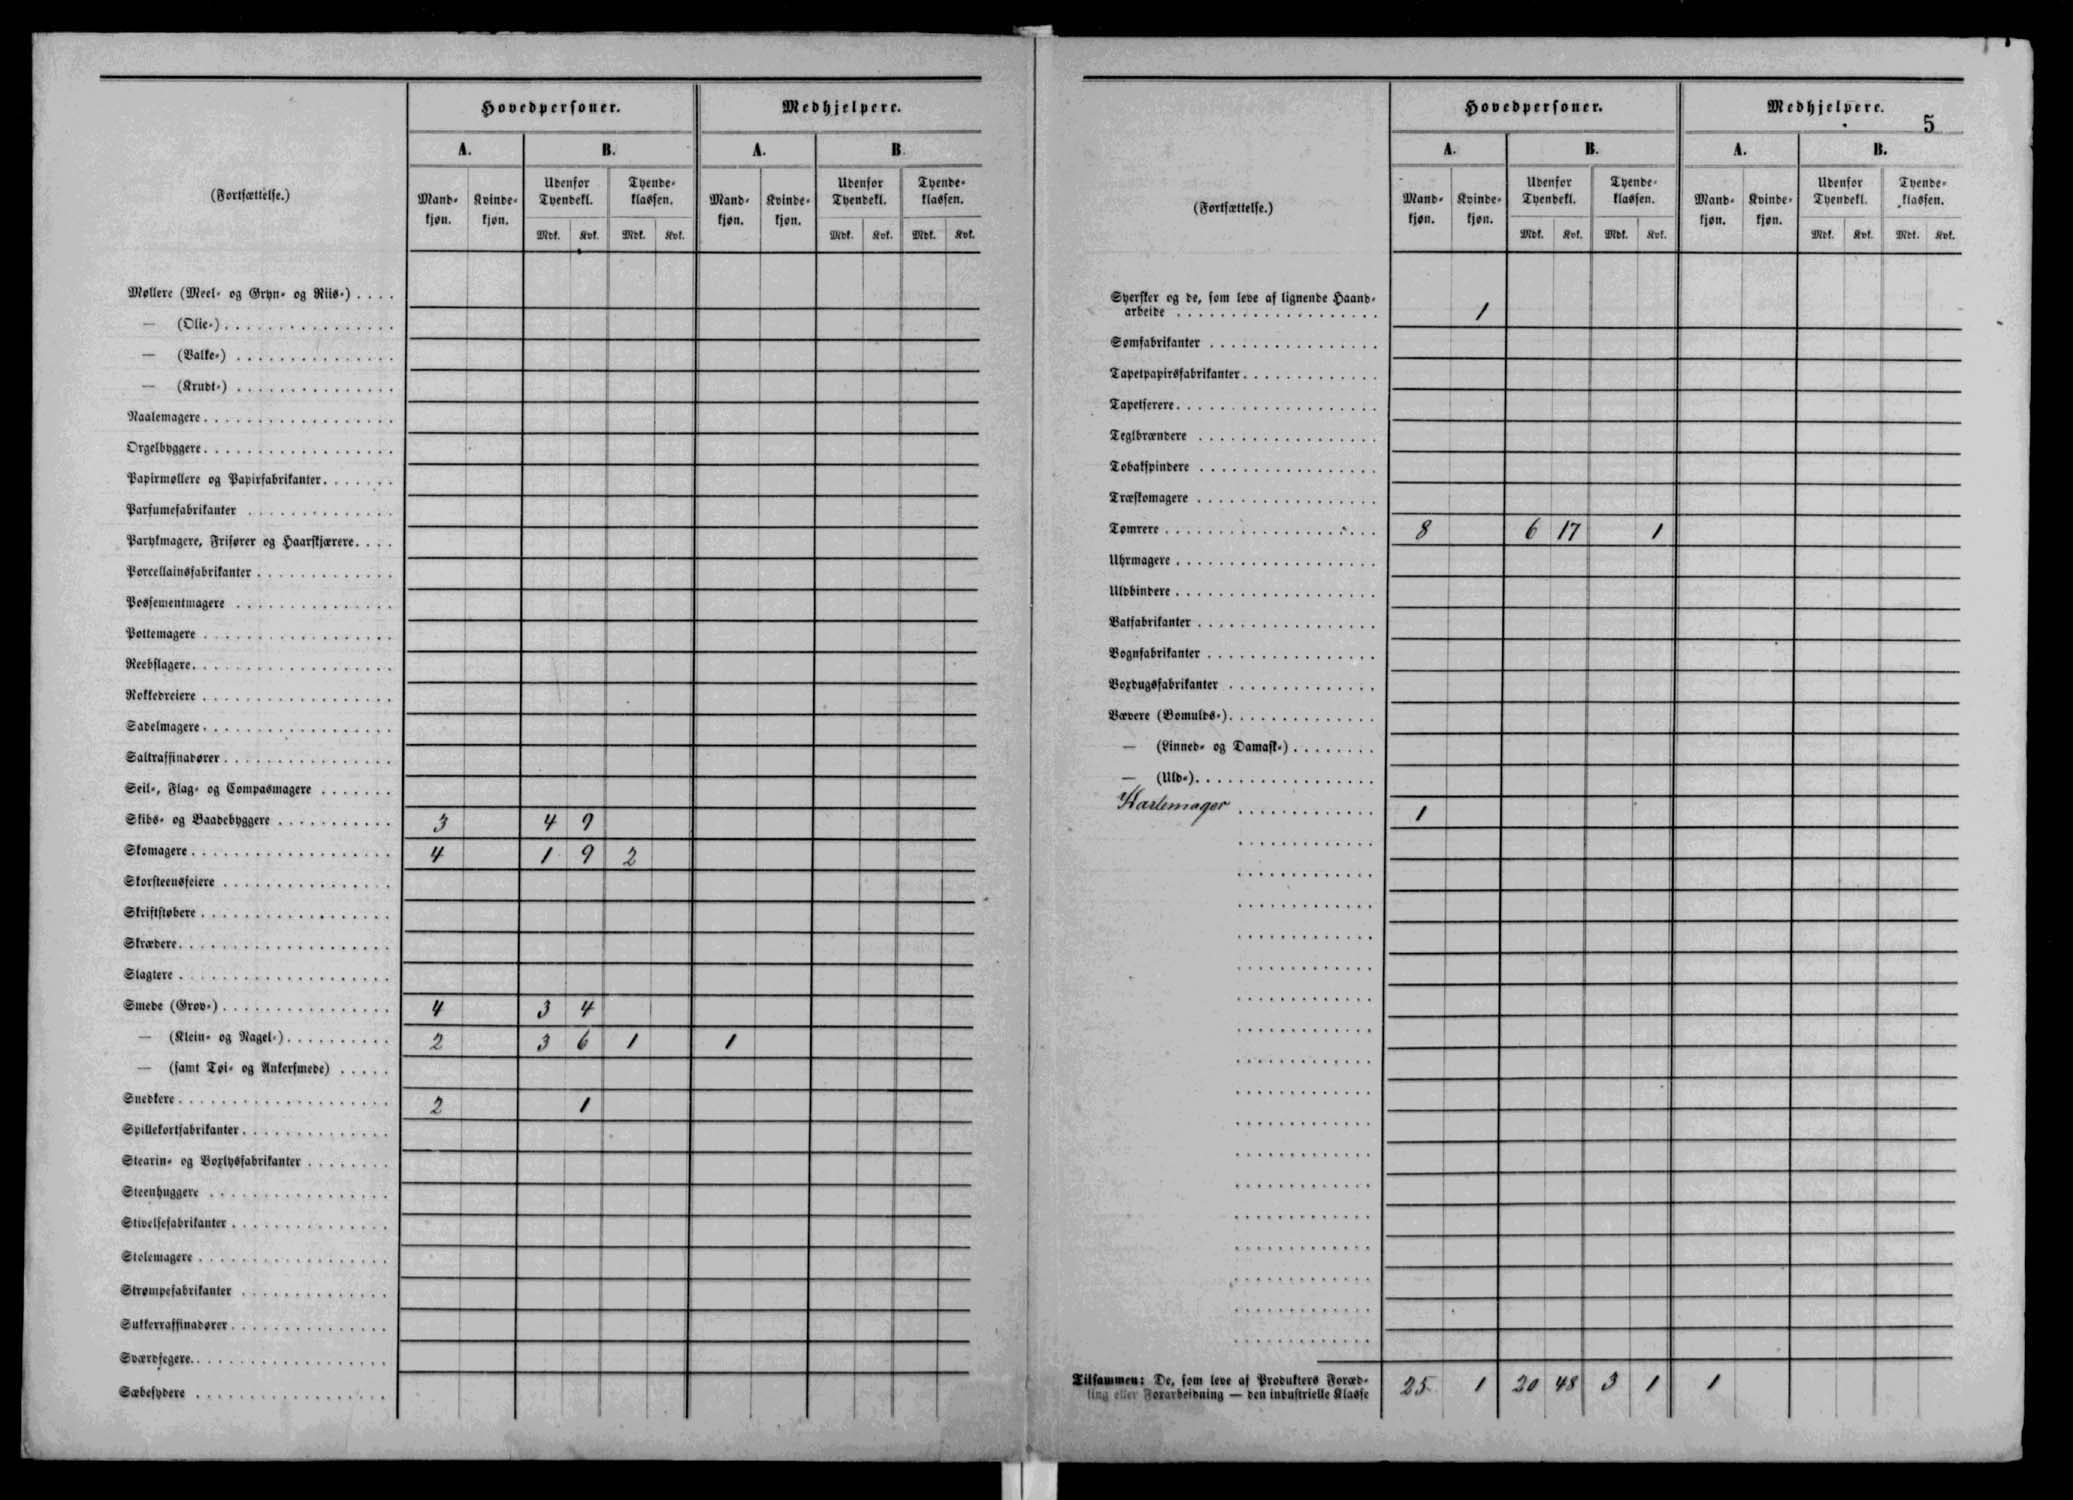 Hovedpersoner. Medhjelpere.
A. B. A. B.
(Fortsættelse.)
Mandkjøn. Kvindekjøn. Udenfor Tyendekl. Tyendeklassen. Mandkjøn. Kvindekjøn. Udenfor Tyendekl. Tyendeklassen.
Mdk. Kvk. Mdk. Kvk. Mdk. Kvk. Mdk. Kvk.
Møllere (Meel- og Gryn- og Riis-) . . . .
— (Olie-) . . . .
— (Valke-) . . . .
— (Krudt-) . . . .
Naalemagere . . . .
Orgelbyggere . . . .
Papirmøllere og Papirfabrikanter . . . .
Parfumefabrikanter . . . .
Parykmagere, Frisører og Haarskjærere . . . .
Porcellainsfabrikanter . . . .
Possementmagere . . . .
Pottemagere . . . .
Reebslagere . . . .
Rokkedreiere . . . .
Sadelmagere . . . .
Saltraffinadører . . . .
Seil-, Flag- og Compasmagere . . . .
Skibs- og Baadebyggere . . . . 3 4 9
Skomagere . . . . 4 1 9 2
Skorsteensfeiere . . . .
Skriftstøbere . . . .
Skrædere . . . .
Slagtere . . . .
Smede (Grov-) . . . . 4 3 4
— (Klein- og Nagel-) . . . . 2 3 6 1 1
— (samt Tøi- og Ankersmede) . . . .
Snedkere . . . . 2 1
Spillekortfabrikanter . . . .
Stearin- og Voxlysfabrikanter . . . .
Steenhuggere . . . .
Stivelsefabrikanter . . . .
Stolemagere . . . .
Strømpefabrikanter . . . .
Sukkerraffinadører . . . .
Sværdfegere . . . .
Sæbesydere . . . .
Hovedpersoner. Medhjelpere.
5
A. B. A. B.
(Fortsættelse.)
Mandkjøn. Kvindekjøn. Udenfor Tyendekl. Tyendeklassen. Mandkjøn. Kvindekjøn. Udenfor Tyendekl. Tyendeklassen.
Mdk. Kvk. Mdk. Kvk. Mdk. Kvk. Mdk. Kvk.
Syersker og de, som leve af lignende Haand-
arbeide . . . . 1
Sømfabrikanter . . . .
Tapetpapirsfabrikanter . . . .
Tapetserere . . . .
Teglbrændere . . . .
Tobakspindere . . . .
Træskomagere . . . .
Tømrere . . . . 8 6 17 1
Uhrmagere . . . .
Uldbindere . . . .
Vatfabrikanter . . . .
Vognfabrikanter . . . .
Voxdugsfabrikanter . . . .
Vævere (Bomulds-) . . . .
— (Linned- og Damask-) . . . .
— (Uld-) . . . .
Kartemager . . . . 1
Tilsammen: De, som leve af Produkters Foræd-
ling eller Forarbeidning — den industrielle Klasse 25 1 20 48 3 1 1